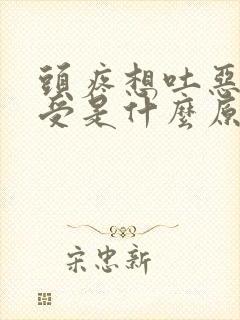 頭疼想吐惡
受是什麼原
宋忠新